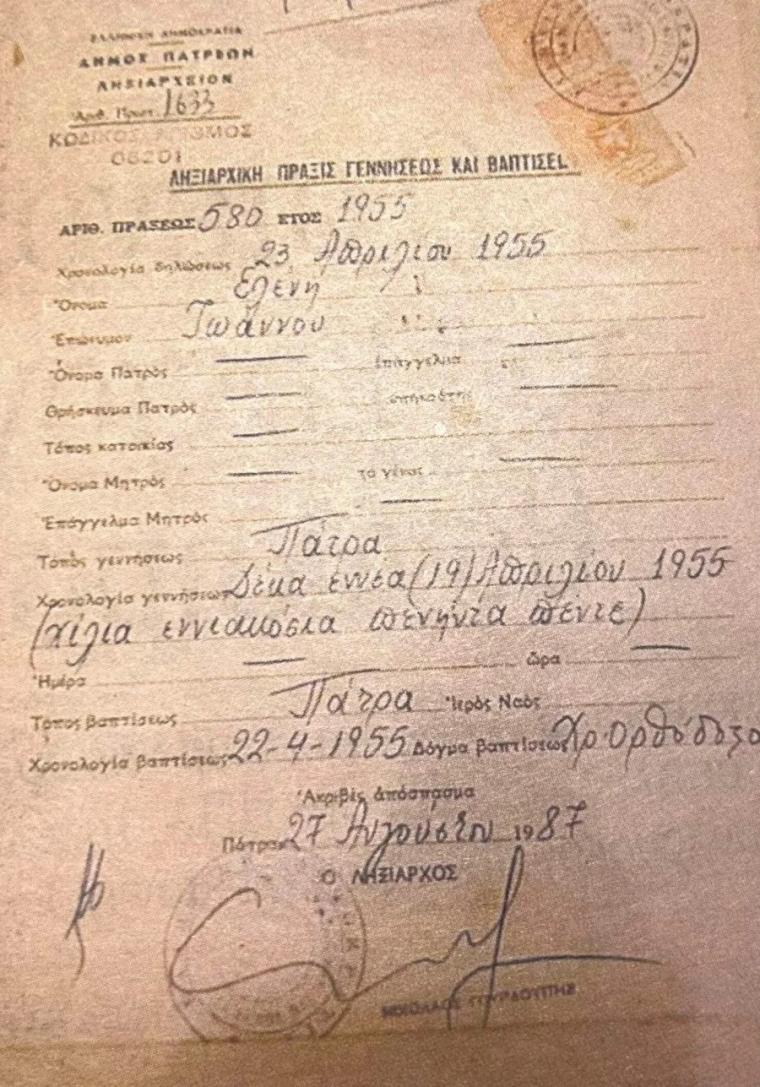 ΕΛΛΗΝΙΚΗ ΔΗΜΟΚΡΑΤΙΑ
ΔΗΜΟΣ ΠΑΤΡΕΩΝ
ΛΗΞΙΑΡΧΕΙΟΝ
Ἀριθ. Πρωτ. 1633
ΚΩΔΙΚΟΣ ΑΡΙΘΜΟΣ
06201
ΛΗΞΙΑΡΧΙΚΗ ΠΡΑΞΙΣ ΓΕΝΝΗΣΕΩΣ ΚΑΙ ΒΑΠΤΙΣΕΩΣ
ΑΡΙΘ. ΠΡΑΞΕΩΣ 580 ΕΤΟΣ 1955
Χρονολογία δηλώσεως 23 Απριλίου 1955
Ὄνομα Ελένη
Ἐπώνυμον Ιωάννου
Ὄνομα Πατρὸς — ἐπάγγελμα —
Θρήσκευμα Πατρὸς — ὑπηκοότης —
Τόπος κατοικίας —
Ὄνομα Μητρὸς — τὸ γένος —
Ἐπάγγελμα Μητρὸς —
Τόπος γεννήσεως Πάτρα
Χρονολογία γεννήσεως Δέκα εννέα (19) Απριλίου 1955
(χίλια εννιακόσια πενήντα πέντε)
Ἡμέρα — ὥρα —
Τόπος βαπτίσεως Πάτρα Ἱερὸς Ναὸς
Χρονολογία βαπτίσεως 22-4-1955 Δόγμα βαπτίσεως Χρ. Ορθόδοξο
Ἀκριβὲς ἀπόσπασμα
Πάτραι 27 Αυγούστου 1987
Ο ΛΗΞΙΑΡΧΟΣ
ΝΙΚΟΛΑΟΣ